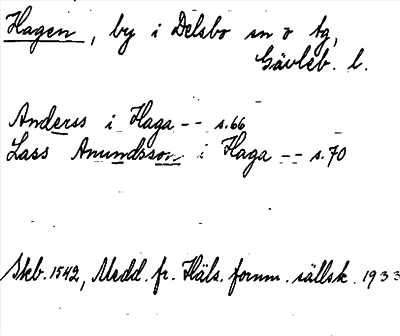 Hagen, by i Delsbo sn o tg,
Gävleb. l.
Anderss i Haga -- s.66
Lass Amundsson i Haga -- s.70
Skb. 1542, Medd. fr. Häls. fornm. sällsk. 1933